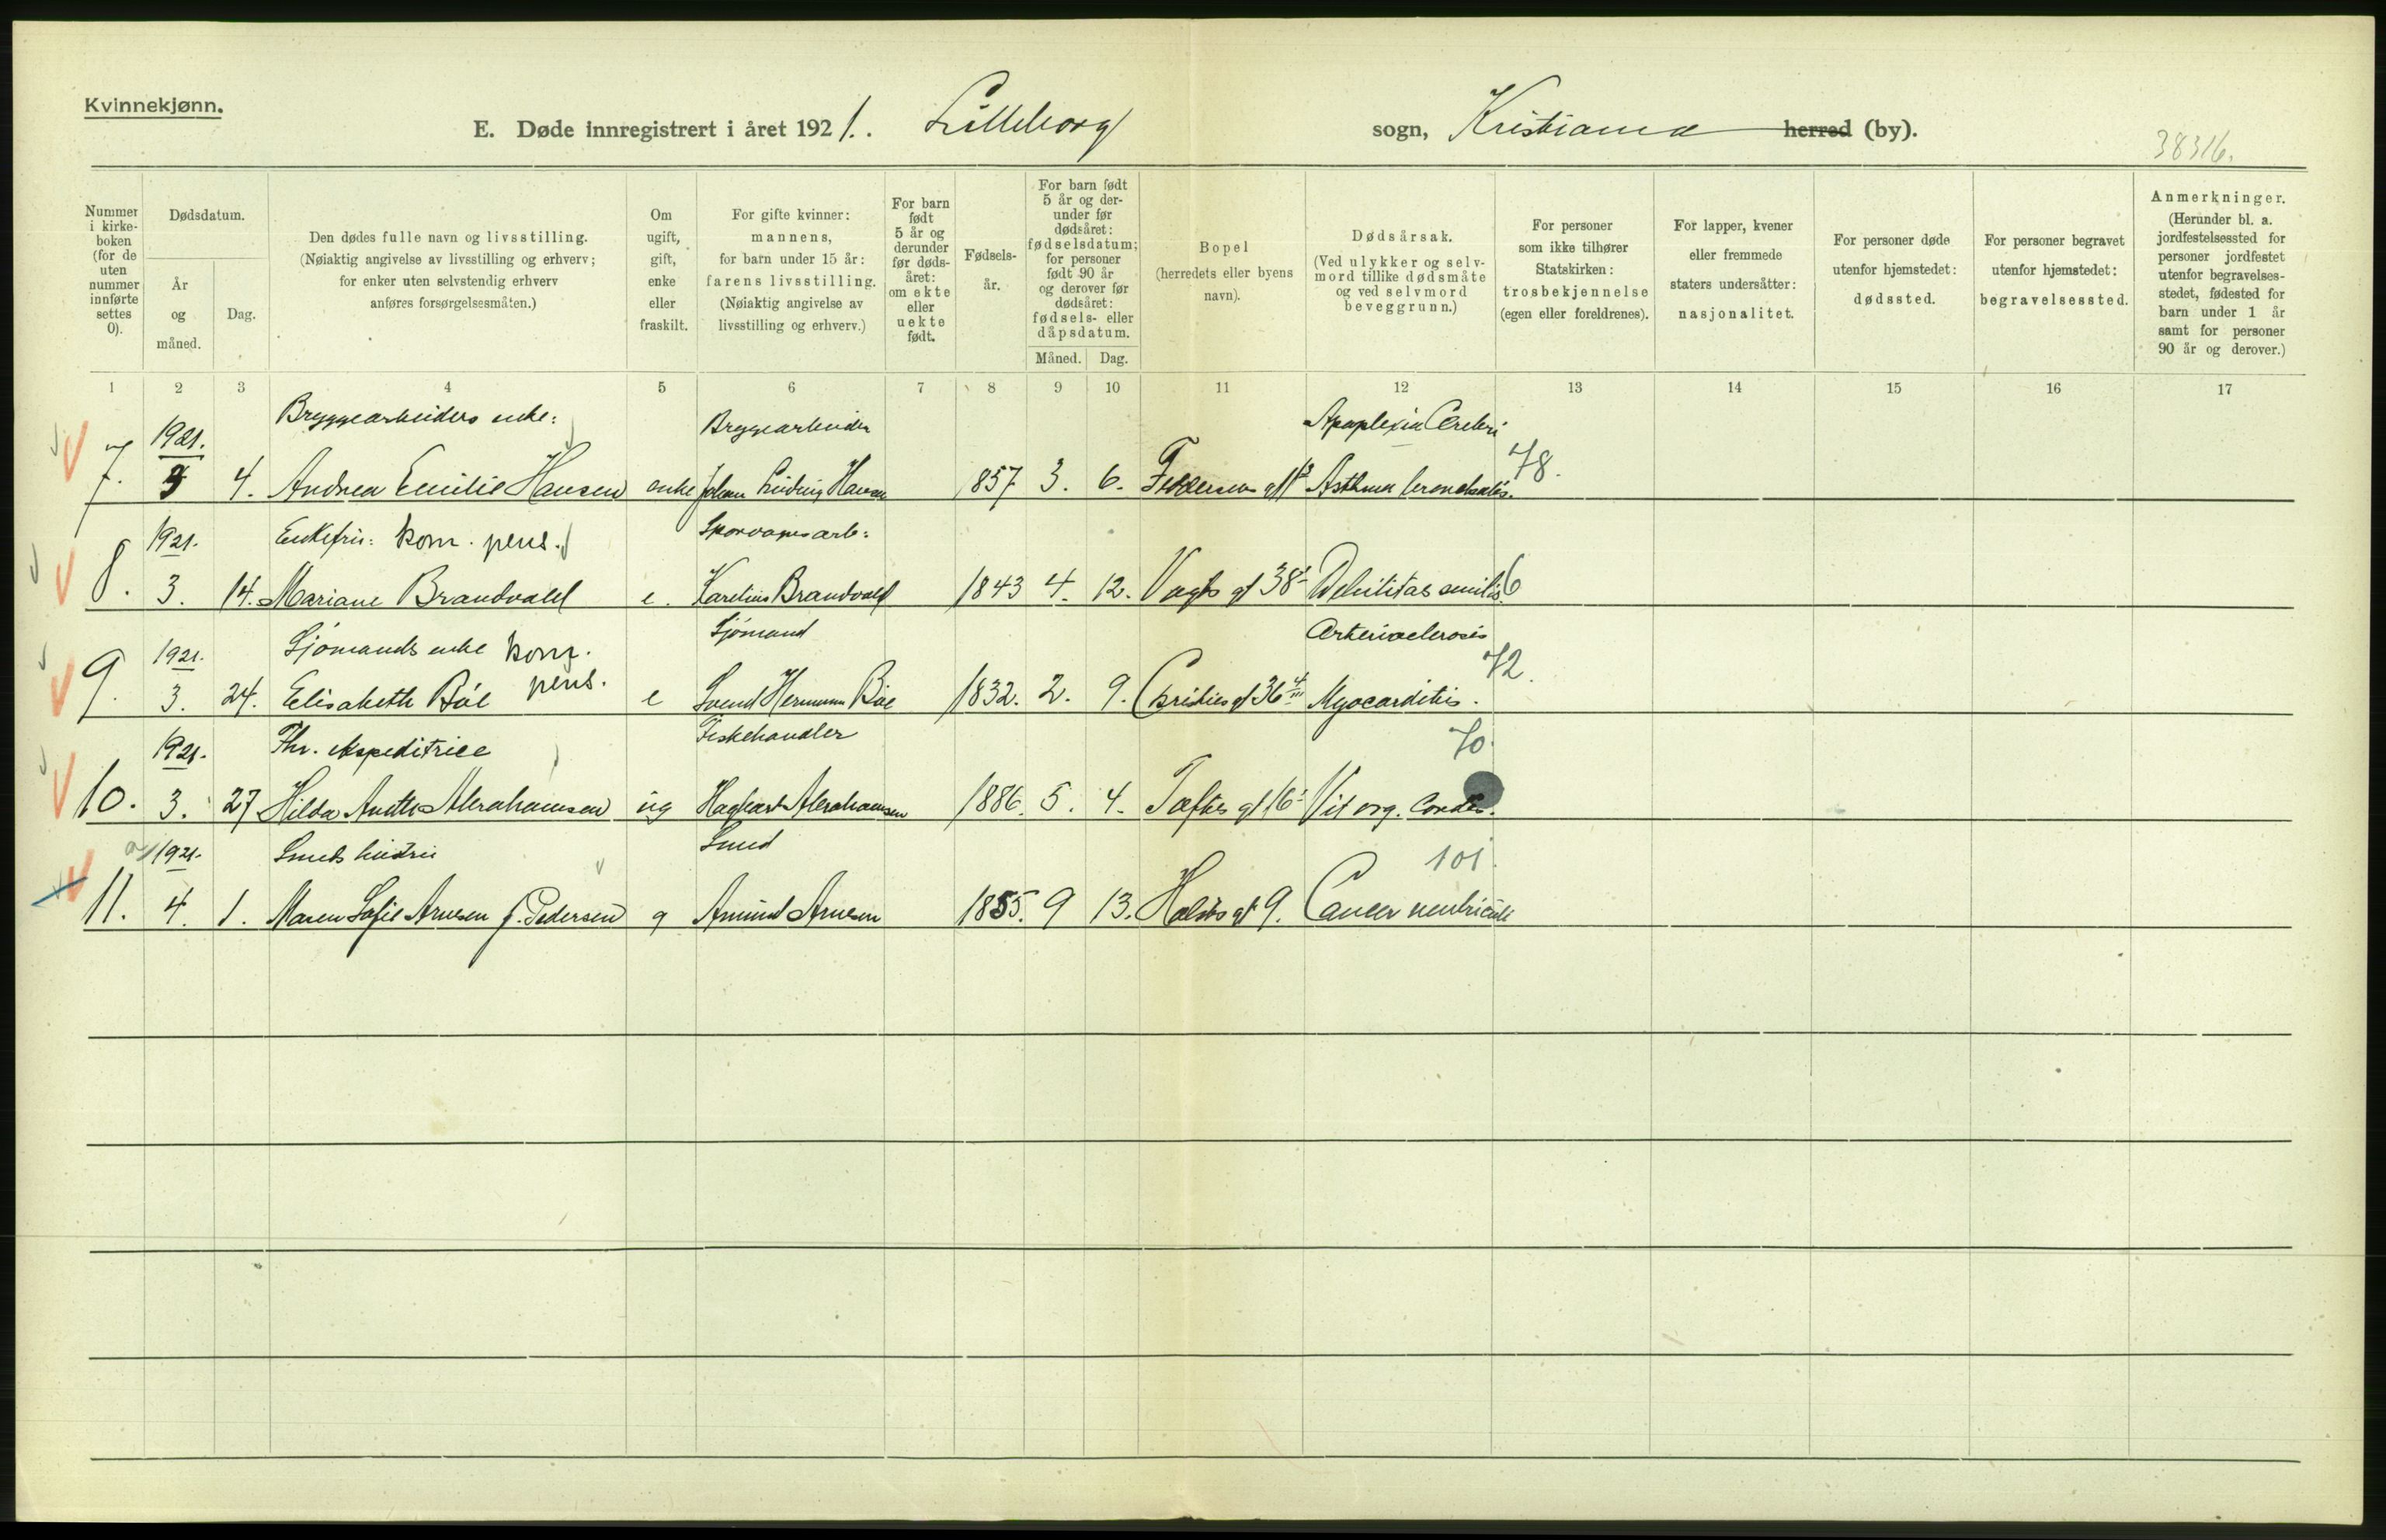 Kvinnekjønn.
E. Døde innregistrert i året 1921. Lilleborg sogn, Kristiania herred (by).
38316.
Nummer i kirkeboken (for de uten nummer innførte settes 0).
Dødsdatum.
År og måned.
Dag.
Den dødes fulle navn og livsstilling.
(Nøiaktig angivelse av livsstilling og erhverv;
for enker uten selvstendig erhverv
anføres forsørgelsesmåten.)
Om ugift, gift, enke eller fraskilt.
For gifte kvinner:
mannens,
for barn under 15 år:
farens livsstilling.
(Nøiaktig angivelse av
livsstilling og erhverv.)
For barn født 5 år og derunder før dødsåret: om ekte eller uekte født.
Fødselsår.
For barn født 5 år og derunder før dødsåret: fødselsdatum; for personer født 90 år og derover før dødsåret: fødsels- eller dåpsdatum.
Måned. Dag.
Bopel
(herredets eller byens
navn).
Dødsårsak.
(Ved ulykker og selvmord tillike dødsmåte
og ved selvmord
beveggrunn.)
For personer
som ikke tilhører
Statskirken:
trosbekjennelse
(egen eller foreldrenes).
For lapper, kvener
eller fremmede
staters undersåtter:
nasjonalitet.
For personer døde
utenfor hjemstedet:
dødssted.
For personer begravet
utenfor hjemstedet:
begravelsessted.
Anmerkninger.
(Herunder bl. a.
jordfestelsessted for
personer jordfestet
utenfor begravelsesstedet, fødested for
barn under 1 år
samt for personer
90 år og derover.)
1 2 3 4 5 6 7 8 9 10 11 12 13 14 15 16 17
1921. Bryggearbeiders enke: Bryggearbeider Apoplexia Cerebri
7. 3 4. Andrea Emilie Hansen enke Johan Ludvig Hansen 1857 3. 6. Asthma bronchiale. 78.
1921. Enkefru: kom. pens. Sporveisarb:
8. 3. 14. Mariane Brandvold e. Karelius Brandvold 1843 4. 12. Vogts gt 38 Debilitas senilis 6
1921. Sjømands enke kom. pens. Sjømand Arteriosclerosis
9. 3. 24. Elisabeth Bøe e Svend Hermann Bøe 1832. 2. 9. Christies gt 36 Myocarditis. 72.
1921. Fhv. ekspeditrice Fiskehandler 70.
10. 3. 27 Hilda Abrahamsen ug Abrahamsen 1886. 5. 4. Toftes gt 16 Vit org. Cordis.
1921. Smeds hustru Smed 101.
11. 4. 1. Maren Sofie Arnesen f. Pedersen g Amund Arnesen 1855. 9 13. Holsts gt 9. Cancer ventriculi